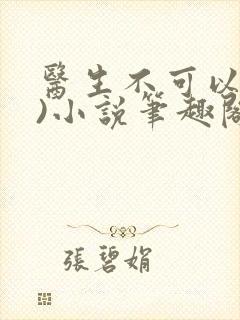 醫生不可以
)小說筆趣閣
張碧娟